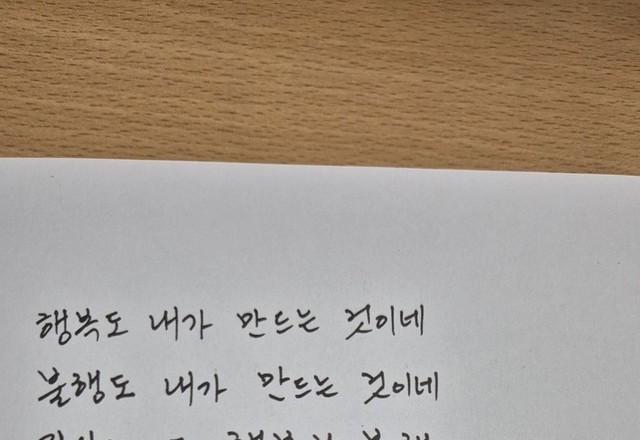 행복도 내가 만드는 것이네
불행도 내가 만드는 것이네